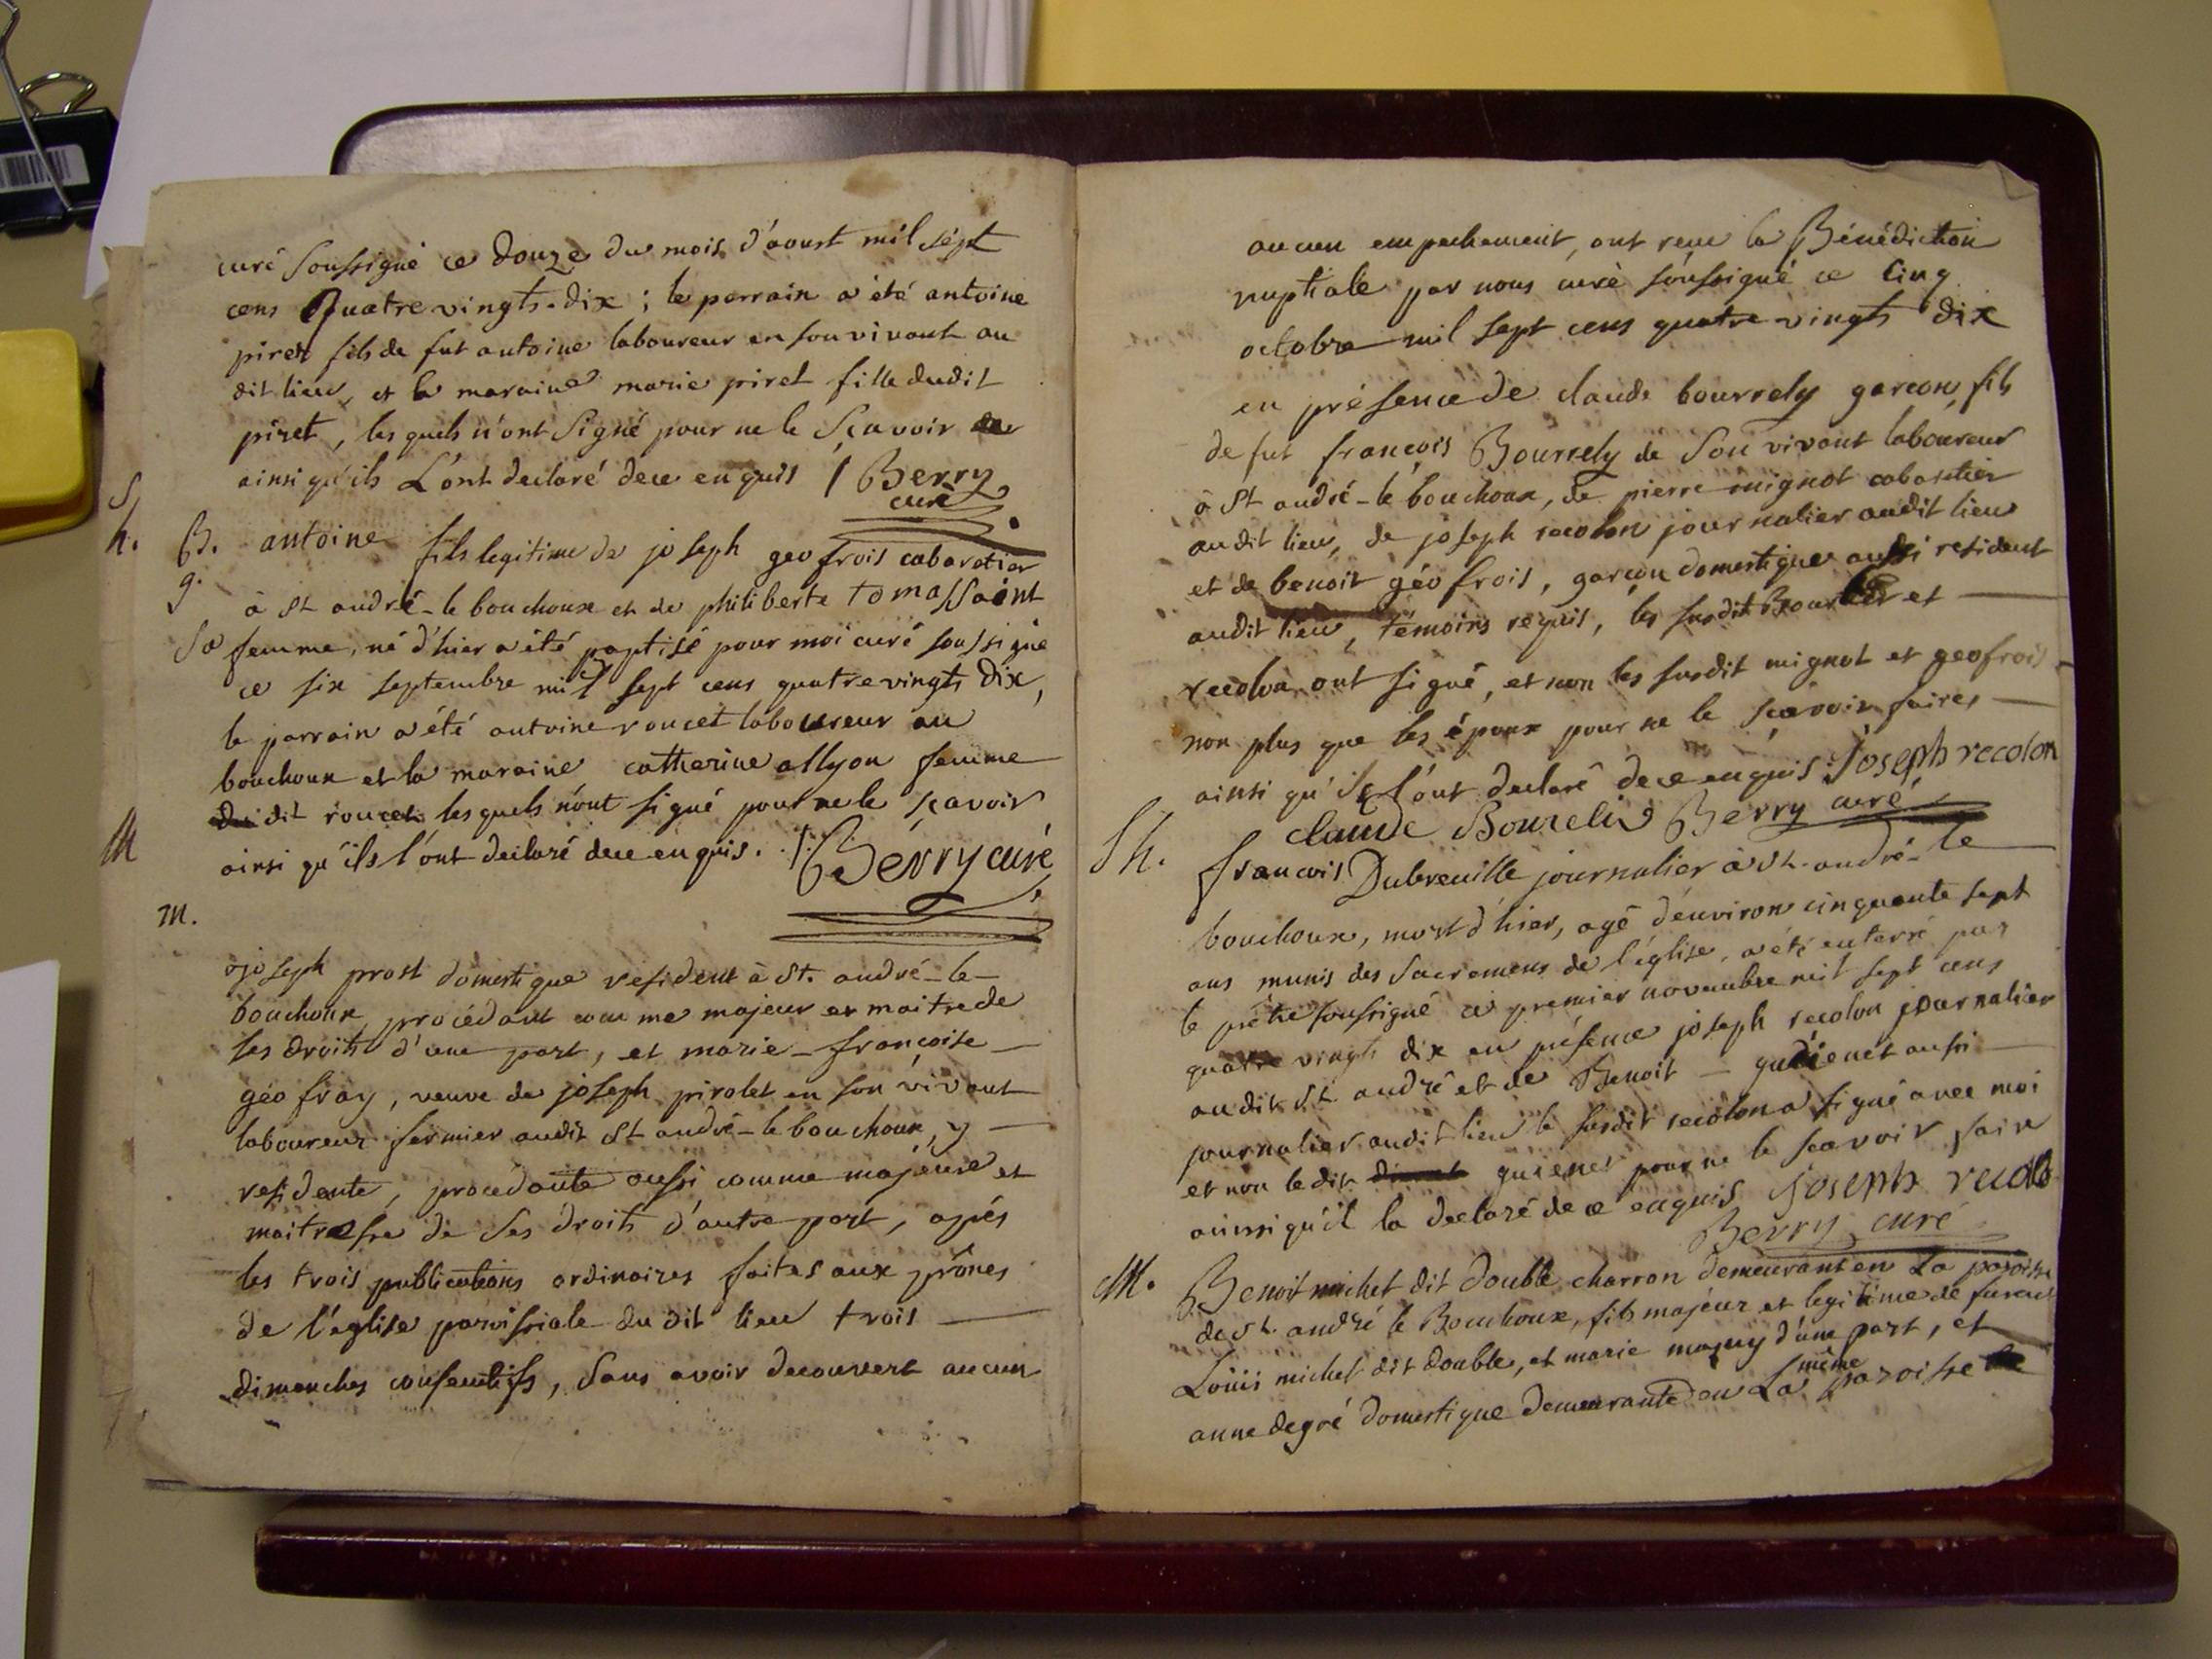 curé soussigné ce douze du mois d'aoust mil sept
cens Quatre vingts-dix ; le parrain a été antoine
piret fils de fut antoine laboureur en son vivant au
dit lieu, et la maraine marie piret fille dudit
piret, les quels n'ont Signé pour ne le Sçavoir
ainsi qu'ils L'ont declaré de ce enquis / Berry
curé
S
h.
B.
g.
antoine fils legitime de joseph geofrois cabaretier
à St andré-le bouchoux et de philiberte tomassaint
Sa femme, né d'hier a été paptisé pour moi curé soussigné
ce six septembre mil sept cens quatre vingts dix,
le parrain a été antoine roucet laboureur au
bouchoux et la maraine catherine allyon femme
du dit roucet les quels n'ont signé pour ne le sçavoir
ainsi qu'ils l'ont declaré de ce enquis. /. Berry curé
M
m.
joseph prost domestique resident à St. andré-le-
bouchoux, procédant comme majeur et maitre de
ses droits d'une part, et marie-françoise
géofray, veuve de joseph pirolet en son vivant
laboureur fermier audit St andré-le bouchoux, y
residente, procédante aussi comme majeure et
maitresse de ses droits d'autre part, apés
les trois publications ordinaires faites aux prônes
de l'eglise paroissiale du dit lieu trois
dimanches consecutifs, sans avoir decouvert aucun
aucun empechement, ont reçu la Bénédiction
nuptiale par nous curé soussigné ce Cinq
octobre mil sept cens quatre vingts dix
en présence de claude bourrely garcon, fils
de fut françois Bourrely de Son vivant laboureur
à St andré-le bouchoux, de pierre mignot cabaretier
au dit lieu, de joseph recolon journalier audit lieu
et de benoit géofrois, garçon domestique aussi resident
audit lieu, témoins requis, les susdit et
recolon ont signé, et non les susdit mignot et geofrois
non plus que les époux pour ne le sçavoir faires
ainsi qu'ils l'ont declaré de ce enquis Joseph recolon
claude Bourelis Berry curé
Sh.
francois Dubreuille journalier à St-andré-le
bouchoux, mort d'hier, agé d'environ cinquante sept
ans munis des Sacremens de l'église, a été enterré par
le prêtre soussigné ce premier novembre mil sept cens
quatre vingts dix en présence joseph recolon journalier
au dit St andré et de Benoit guienet aussi
journalier audit lieu le susdit recolon a signé avec moi
et non le dit guienet pour ne le sçavoir faire
ainssi qu'il la declaré de ce enquis Joseph recolo
Berry curé
M.
Benoit michet dit double charron demeurant en La paroisse
de St. andré le Bouchoux, fils majeur et legitime de
Louis michet dit double, et marie d'une part, et
anne degré domestique demeurante en La même paroisse